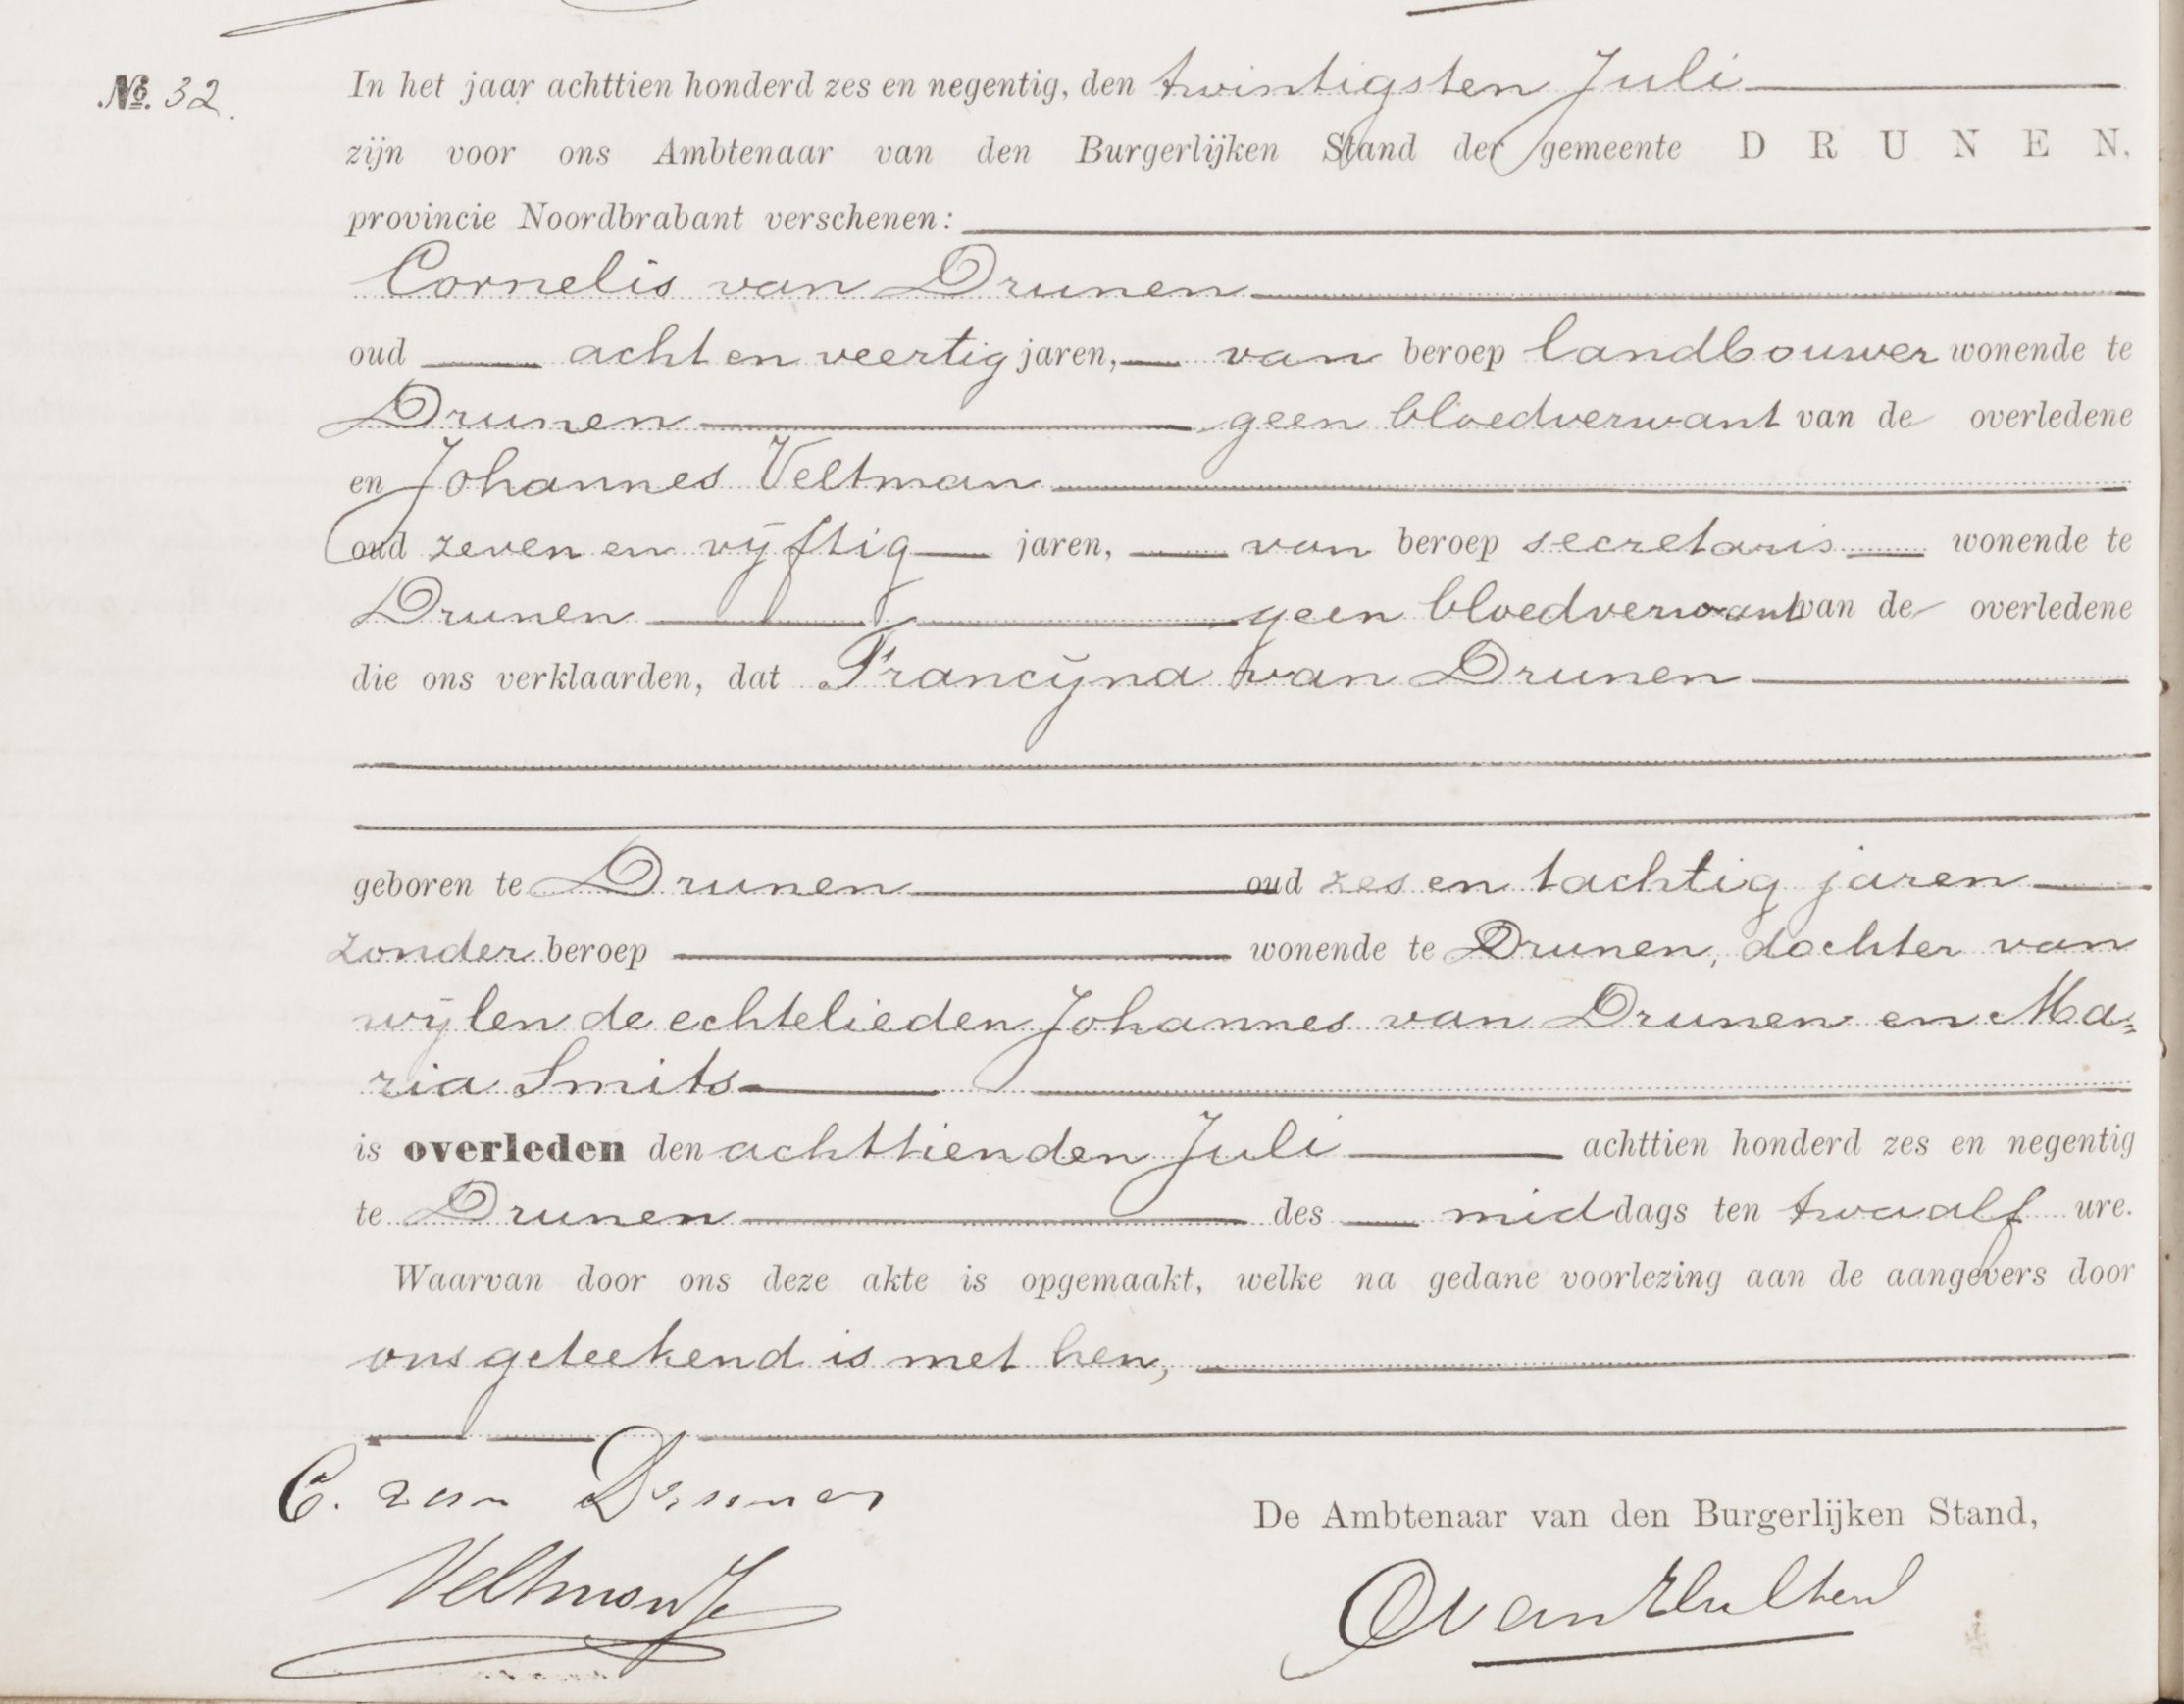 No. 32.
In het jaar achttien honderd zes en negentig, den twintigsten Juli
zijn voor ons Ambtenaar van den Burgerlijken Stand der gemeente DRUNEN,
provincie Noordbrabant verschenen:
Cornelis van Drunen
oud acht en veertig jaren, van beroep landbouwer wonende te
Drunen geen bloedverwant van de overledene
en Johannes Veltman
oud zeven en vijftig jaren, van beroep secretaris wonende te
Drunen geen bloedverwant van de overledene
die ons verklaarden, dat Francijna van Drunen
geboren te Drunen oud zes en tachtig jaren
zonder beroep wonende te Drunen, dochter van
wijlen de echtelieden Johannes van Drunen en Ma=
ria Smits
is overleden den achttienden Juli achttien honderd zes en negentig
te Drunen des middags ten twaalf ure.
Waarvan door ons deze akte is opgemaakt, welke na gedane voorlezing aan de aangevers door
ons geteekend is met hen,
C. van Drunen
De Ambtenaar van den Burgerlijken Stand,
Veltman